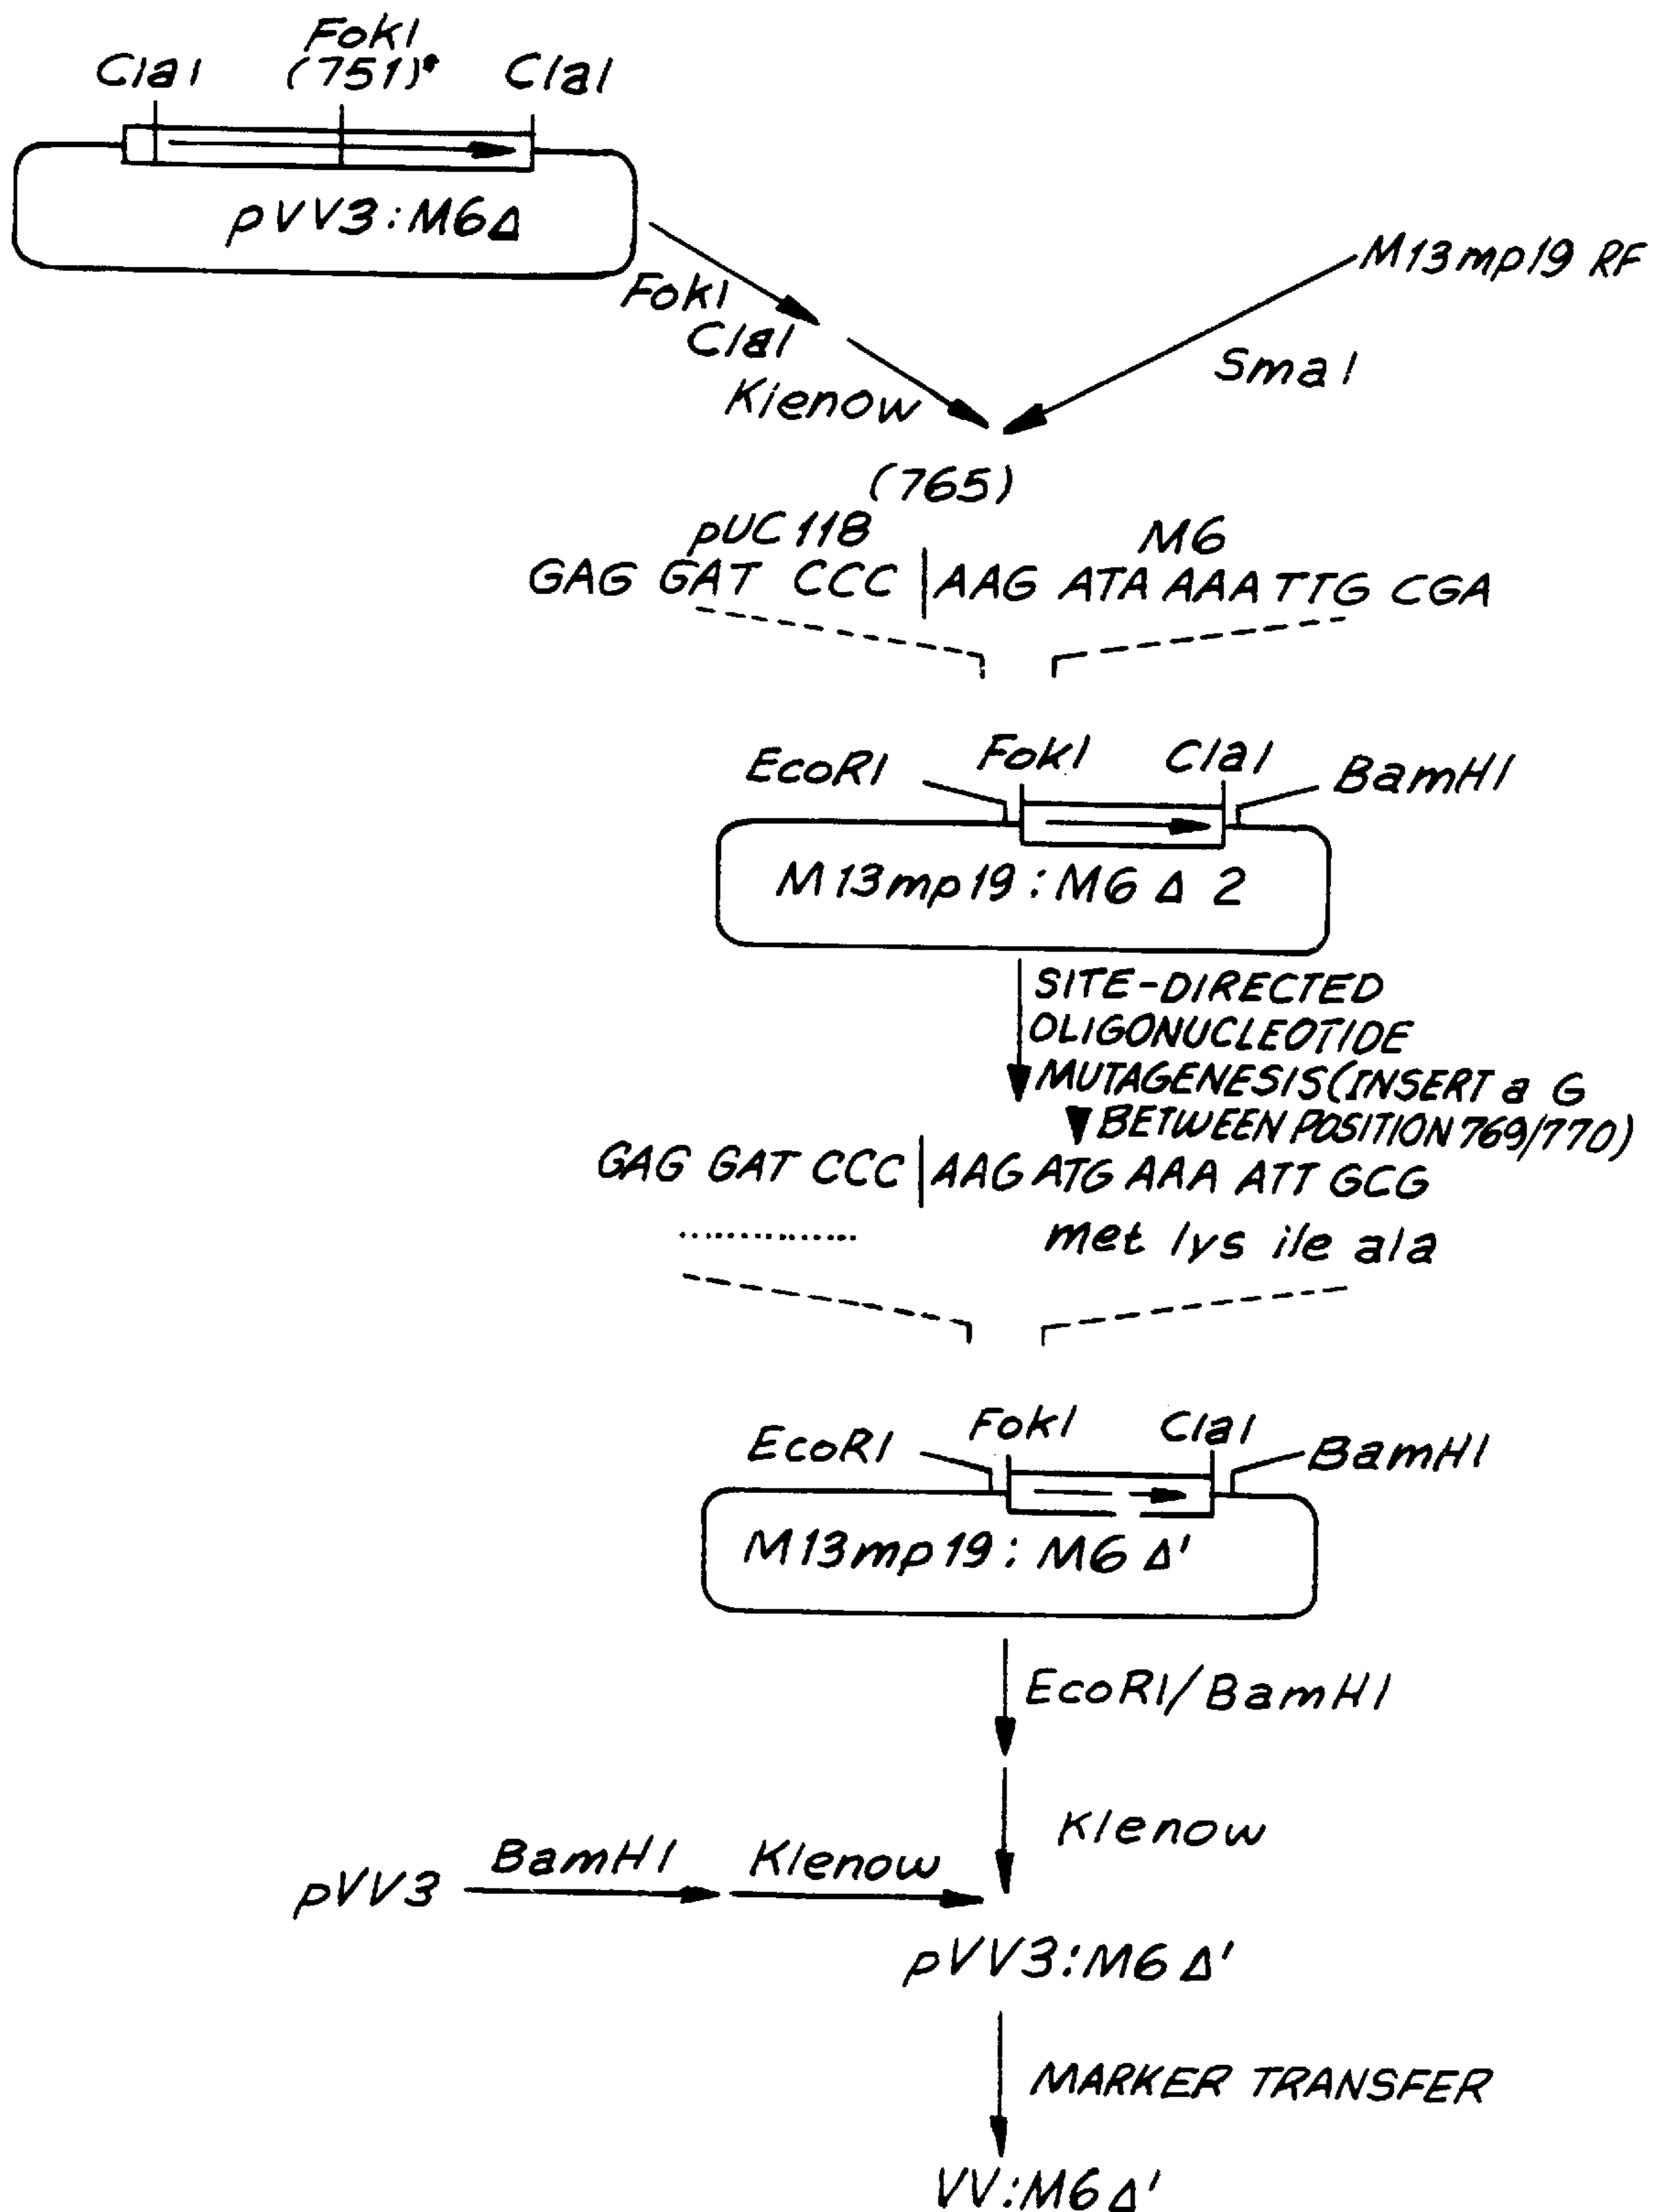 FokI
ClaI (751)* ClaI
pVV3:M6Δ
M13mp19 RF
FokI
ClaI
SmaI
Klenow
(765)
pUC118 M6
GAG GAT CCC | AAG ATA AAA TTG CGA
EcoRI FokI ClaI BamHI
M13mp19:M6 Δ 2
SITE-DIRECTED
OLIGONUCLEOTIDE
MUTAGENESIS (INSERT a G
BETWEEN POSITION 769/770)
GAG GAT CCC | AAG ATG AAA ATT GCG
met lys ile ala
EcoRI FokI ClaI BamHI
M13mp19:M6 Δ'
EcoRI/BamHI
Klenow
pVV3 BamHI Klenow
pVV3:M6 Δ'
MARKER TRANSFER
VV:M6 Δ'